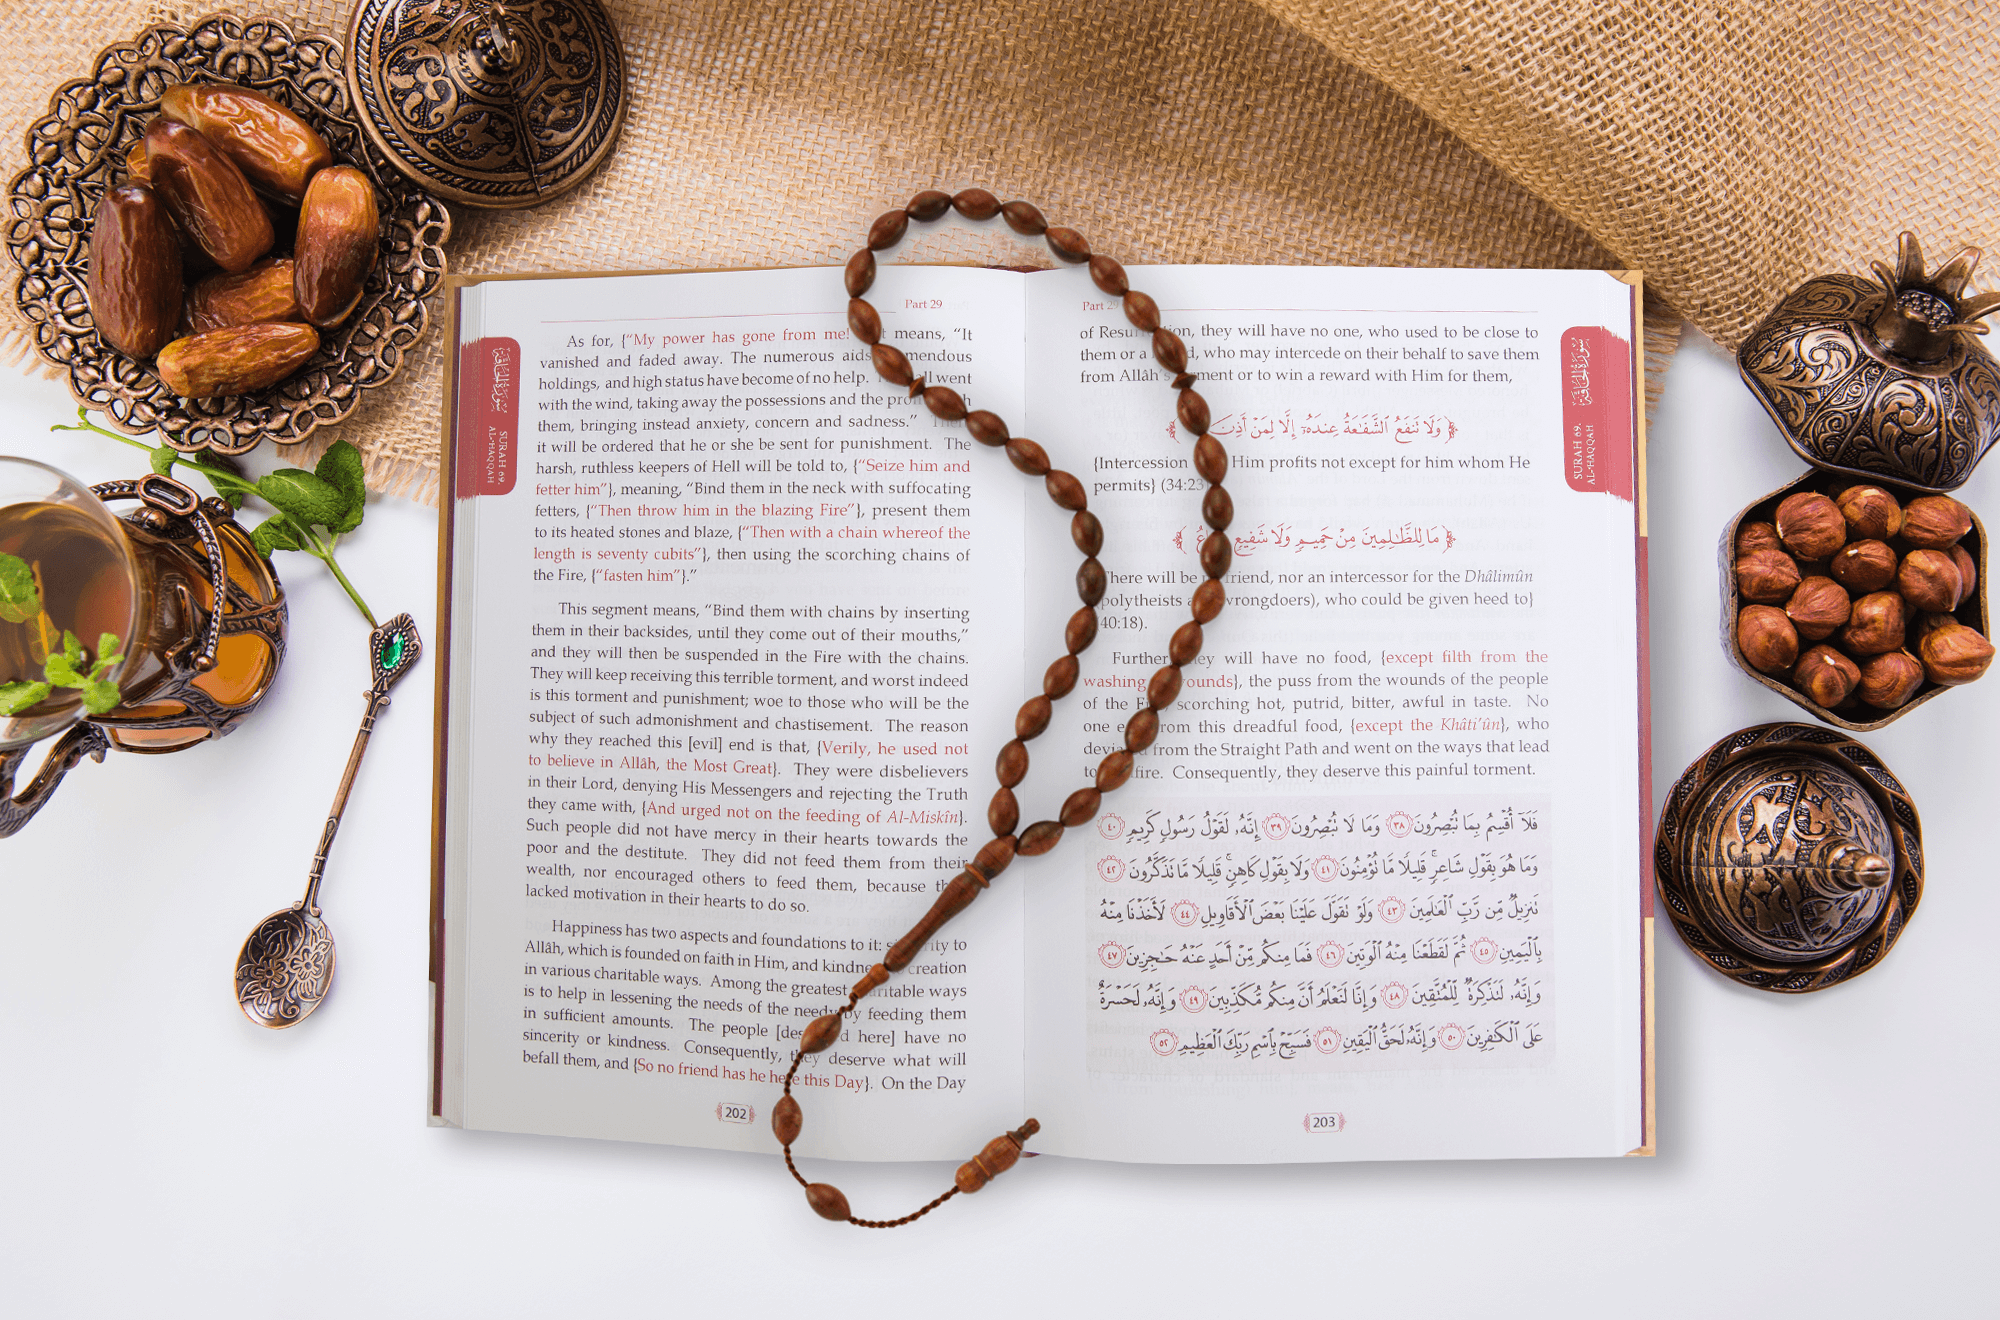 Part 29
As for, {“My power has gone from me! means, “It
vanished and faded away. The numerous aids
holdings, and high status have become of no help. all went
with the wind, taking away the possessions and the
them, bringing instead anxiety, concern and sadness.”
it will be ordered that he or she be sent for punishment. The
harsh, ruthless keepers of Hell will be told to, {“Seize him and
fetter him”}, meaning, “Bind them in the neck with suffocating
fetters, {“Then throw him in the blazing Fire”}, present them
to its heated stones and blaze, {“Then with a chain whereof the
length is seventy cubits”}, then using the scorching chains of
the Fire, {“fasten him”}.”
This segment means, “Bind them with chains by inserting
them in their backsides, until they come out of their mouths,”
and they will then be suspended in the Fire with the chains.
They will keep receiving this terrible torment, and worst indeed
is this torment and punishment; woe to those who will be the
subject of such admonishment and chastisement. The reason
why they reached this [evil] end is that, {Verily, he used not
to believe in Allâh, the Most Great}. They were disbelievers
in their Lord, denying His Messengers and rejecting the Truth
they came with, {And urged not on the feeding of Al-Miskîn}.
Such people did not have mercy in their hearts towards the
poor and the destitute. They did not feed them from their
wealth, nor encouraged others to feed them, because
lacked motivation in their hearts to do so.
Happiness has two aspects and foundations to it: to
Allâh, which is founded on faith in Him, and creation
in various charitable ways. Among the greatest charitable ways
is to help in lessening the needs of the needy by feeding them
in sufficient amounts. The people here] have no
sincerity or kindness. Consequently, they deserve what will
befall them, and {So no friend has he here this Day}. On the Day
202
سُورَةُ الْحَاقَّةِ
SURAH 69.
AL-HAQQAH
Part 29
of they will have no one, who used to be close to
them or a who may intercede on their behalf to save them
from Allâh’s or to win a reward with Him for them,
﴿وَلَا تَنفَعُ ٱلشَّفَـٰعَةُ عِندَهُۥٓ إِلَّا لِمَنْ أَذِنَ
{Intercession Him profits not except for him whom He
permits} (34:23
﴿مَا لِلظَّـٰلِمِينَ مِنْ حَمِيمٍ وَلَا شَفِيعٍ
There will be friend, nor an intercessor for the Dhâlimûn
polytheists wrongdoers), who could be given heed to}
40:18).
Further they will have no food, {except filth from the
washing wounds}, the puss from the wounds of the people
of the scorching hot, putrid, bitter, awful in taste. No
one from this dreadful food, {except the Khâti’ûn}, who
from the Straight Path and went on the ways that lead
to fire. Consequently, they deserve this painful torment.
فَلَآ أُقْسِمُ بِمَا تُبْصِرُونَ ٣٨ وَمَا لَا تُبْصِرُونَ ٣٩ إِنَّهُۥ لَقَوْلُ رَسُولٍ كَرِيمٍ ٤٠
وَمَا هُوَ بِقَوْلِ شَاعِرٍ ۚ قَلِيلًا مَّا تُؤْمِنُونَ ٤١ وَلَا بِقَوْلِ كَاهِنٍ ۚ قَلِيلًا مَّا تَذَكَّرُونَ ٤٢
تَنزِيلٌ مِّن رَّبِّ ٱلْعَـٰلَمِينَ ٤٣ وَلَوْ تَقَوَّلَ عَلَيْنَا بَعْضَ ٱلْأَقَاوِيلِ ٤٤ لَأَخَذْنَا مِنْهُ
بِٱلْيَمِينِ ٤٥ ثُمَّ لَقَطَعْنَا مِنْهُ ٱلْوَتِينَ ٤٦ فَمَا مِنكُم مِّنْ أَحَدٍ عَنْهُ حَـٰجِزِينَ ٤٧
وَإِنَّهُۥ لَتَذْكِرَةٌ لِّلْمُتَّقِينَ ٤٨ وَإِنَّا لَنَعْلَمُ أَنَّ مِنكُم مُّكَذِّبِينَ ٤٩ وَإِنَّهُۥ لَحَسْرَةٌ
عَلَى ٱلْكَـٰفِرِينَ ٥٠ وَإِنَّهُۥ لَحَقُّ ٱلْيَقِينِ ٥١ فَسَبِّحْ بِٱسْمِ رَبِّكَ ٱلْعَظِيمِ ٥٢
203
سُورَةُ الْحَاقَّةِ
SURAH 69.
AL-HAQQAH